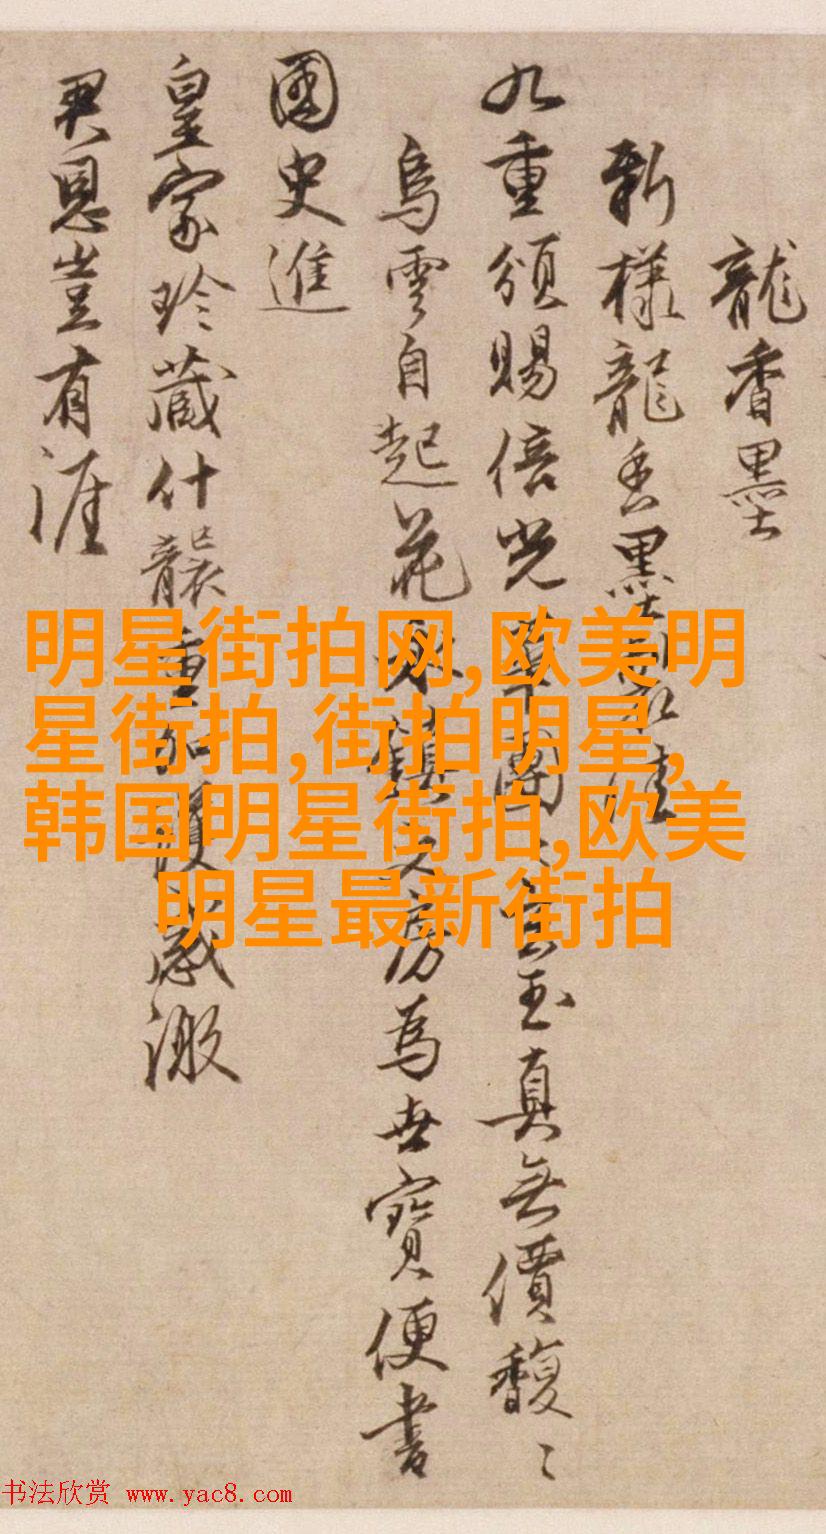 龍香墨
新樣龍香墨佳
九重頒賜倍光華團〻玉真無價馥〻
烏雲自起花永鎮文房為世寶便書
國史進
皇家珍藏什襲重加護感激
君恩豈有涯
明星街拍网,欧美明
星街拍,街拍明星,
韩国明星街拍,欧美
明星最新街拍
书法欣赏 www.yac8.com